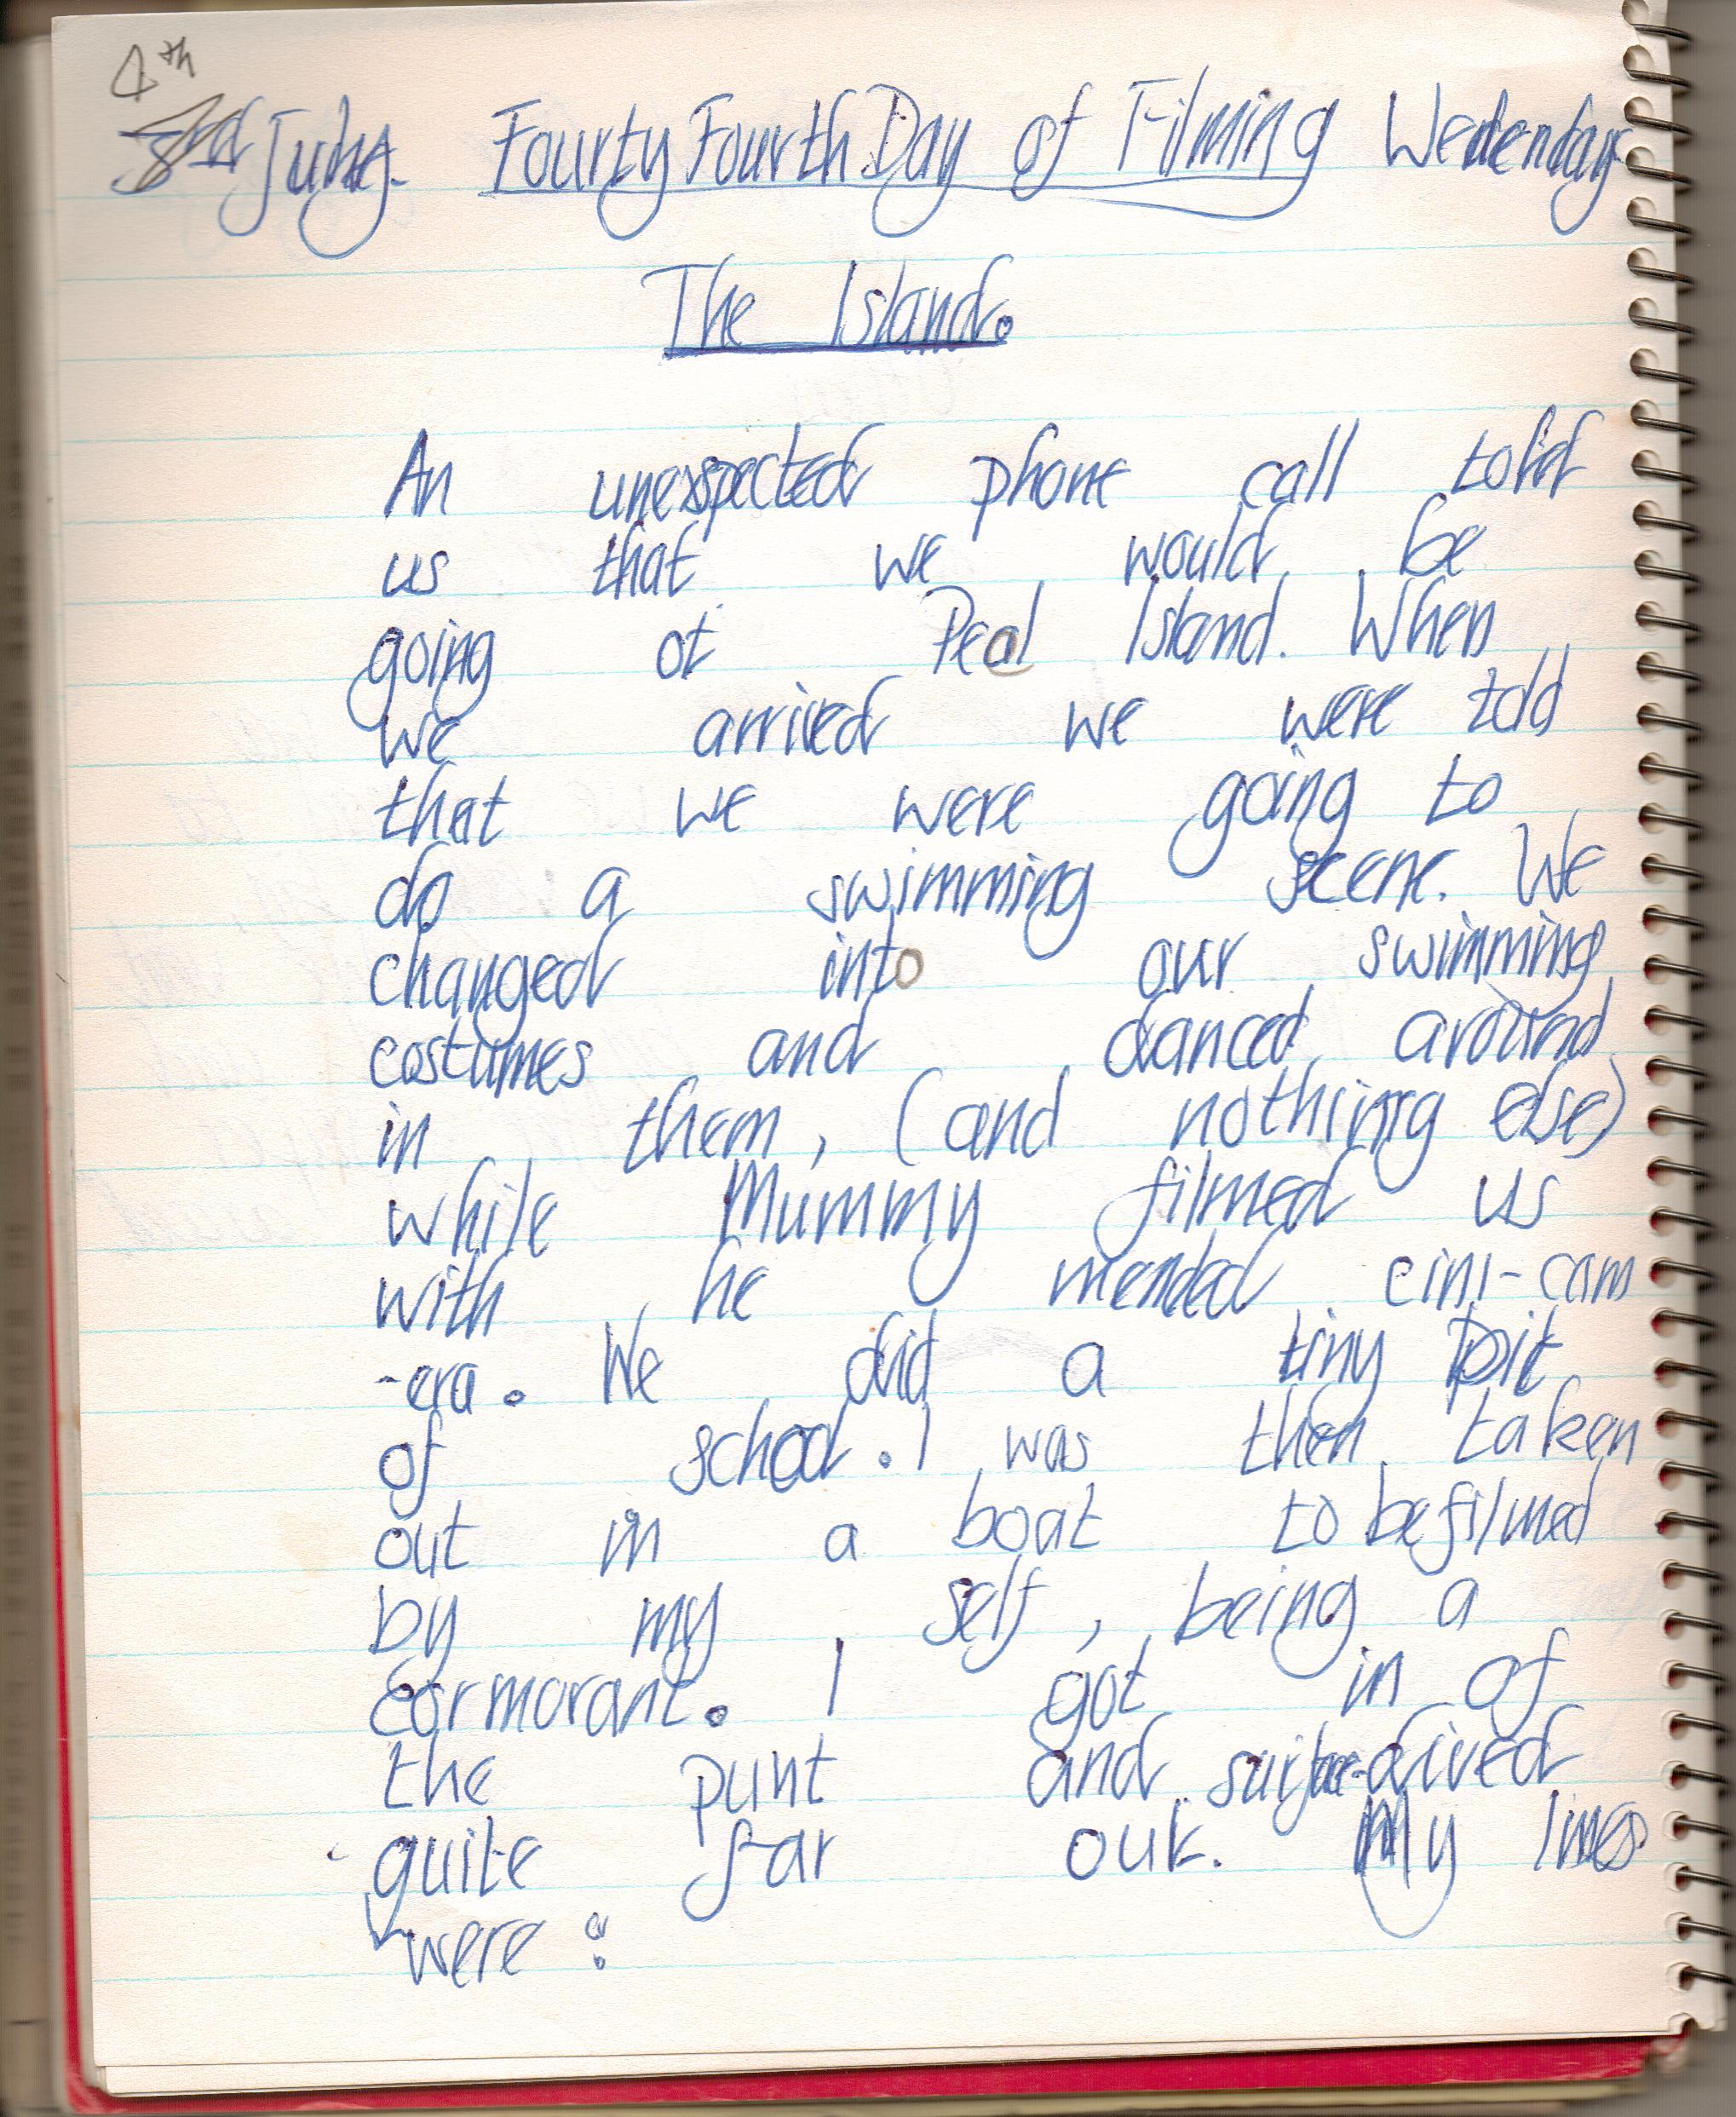 4th
3rd July. Fourty Fourth Day of Filming Wedenday
The Island.
An unexspected phone call told
us that we would be
going ot Peal Island. When
we arrived we were told
that we were going to
do a swimming scene. We
changed into our swimming
costumes and danced around
in them, (and nothing else)
while Mummy filmed us
with he mended cini-cam
-era. We did a tiny bit
of school. I was then taken
out in a boat to be filmed
by my self, being a
cormorant. I got in of
the punt and surface-dived
quite far out. My lines
were :